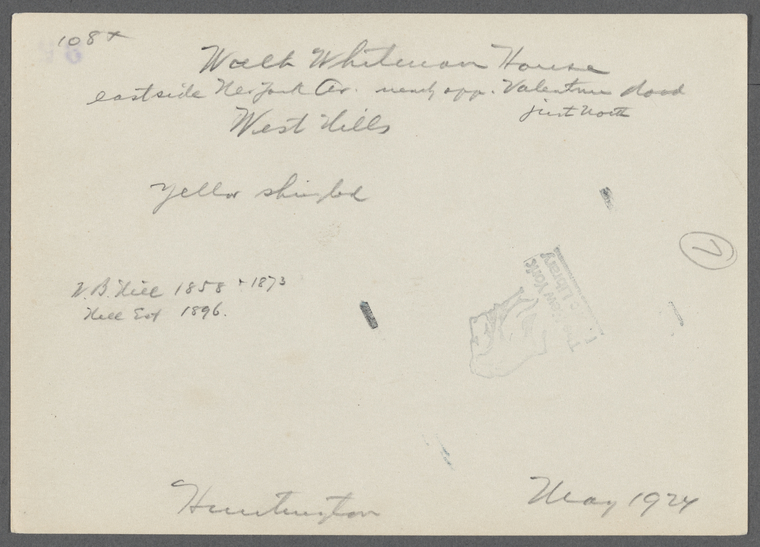 108+
Walt Whitman House
eastside New York Av. nearly opp. Valentine Road
just North
West Hills
Yellow shingled
7
The New York
Public Library
W. B. Hill 1858 + 1873
Hill Est 1896.
Huntington
May 1924